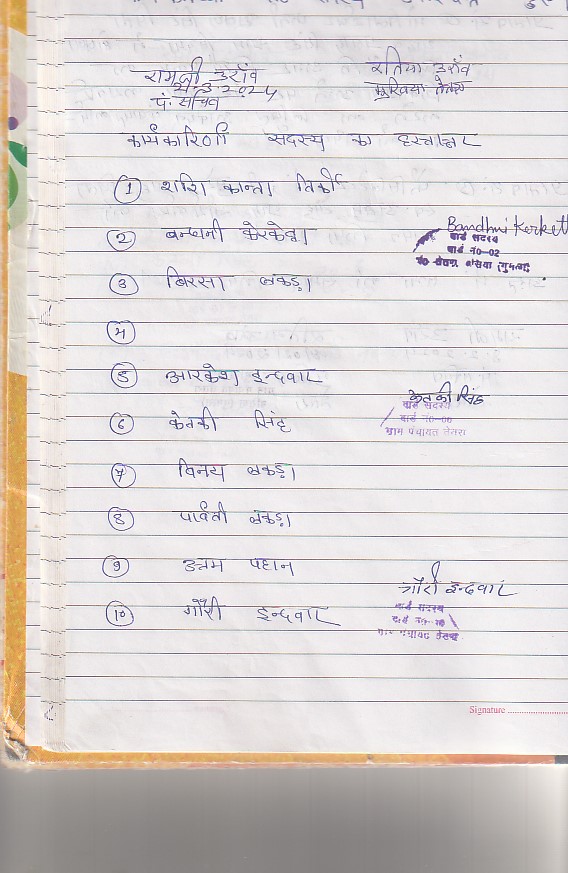 उराँव
रतिया उराँव
2024
पं. सचिव
मुखिया तेतरा
कार्यकारिणी सदस्य का हस्ताक्षर
① शशि कान्ता तिर्की
② बन्धनी केरकेट्टा
Bandhni Kerkett
वार्ड सदस्य
वार्ड नं०-02
③ बिरसा लकड़ा
④
⑤ आरकेश इन्दवार
केतकी सिंह
वार्ड सदस्य
वार्ड नं०-06
ग्राम पंचायत तेतरा
⑥ केतकी सिंह
⑦ विनय लकड़ा
⑧ पार्वती लकड़ा
⑨ उत्तम पहान
गौरी इन्दवार
⑩ गौरी इन्दवार
वार्ड सदस्य
वार्ड नं०-10
ग्राम पंचायत तेतरा
Signature